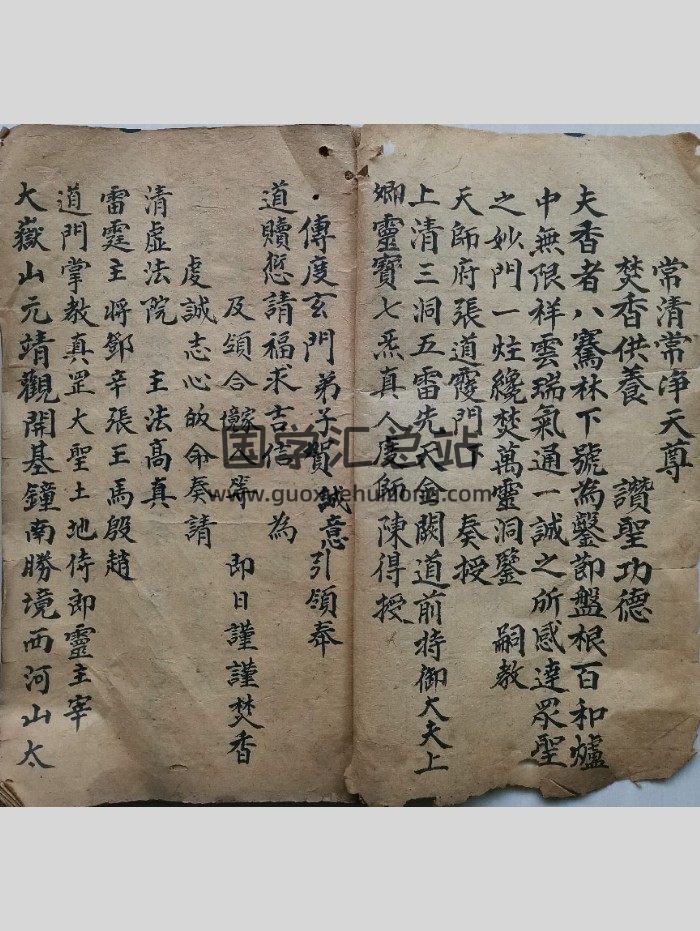 常清常淨天尊
焚香供養　讚聖功德
夫香者八騫林下號為鑿節盤根百和爐
中無限祥雲瑞氣通一誠之所感達眾聖
之妙門一炷纔焚萬靈洞鑒　嗣教
天師府張道霞門下　奏授
上清三洞五雷先天金闕道前持御大夫上
卿靈寶七炁真人度師陳得授
傳度玄門弟子賀誠意引領奉
道贖愆請福求吉信　為
及領合　等　即日謹謹焚香
虔誠志心皈命奏請
清虛法院　主法高真
雷霆主將鄧辛張王馬殷趙
道門掌教真罡大聖土地侍郎靈主宰
大嶽山元靖觀開基鐘南勝境西河山太
国学汇总站
www.guoxuehuizong.com